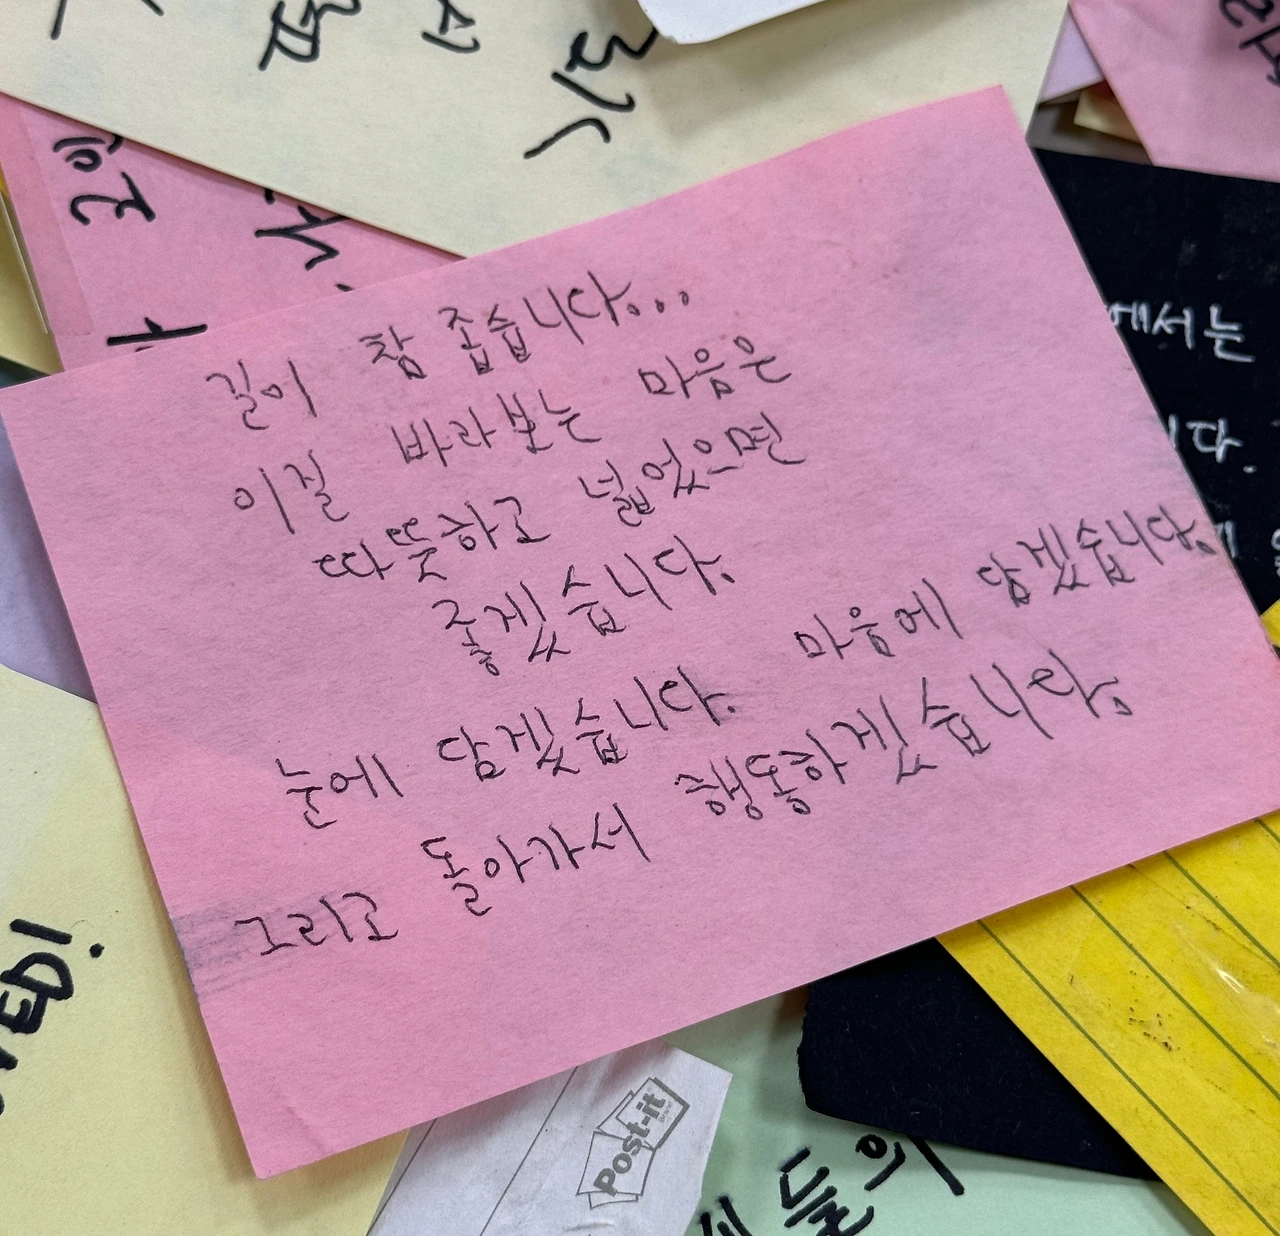 길이 참 좁습니다...
이길 바라보는 마음은
따뜻하고 넓었으면
좋겠습니다.
눈에 담겠습니다. 마음에 담겠습니다.
그리고 돌아가서 행동하겠습니다.
에서는
다.
Post-it
들의